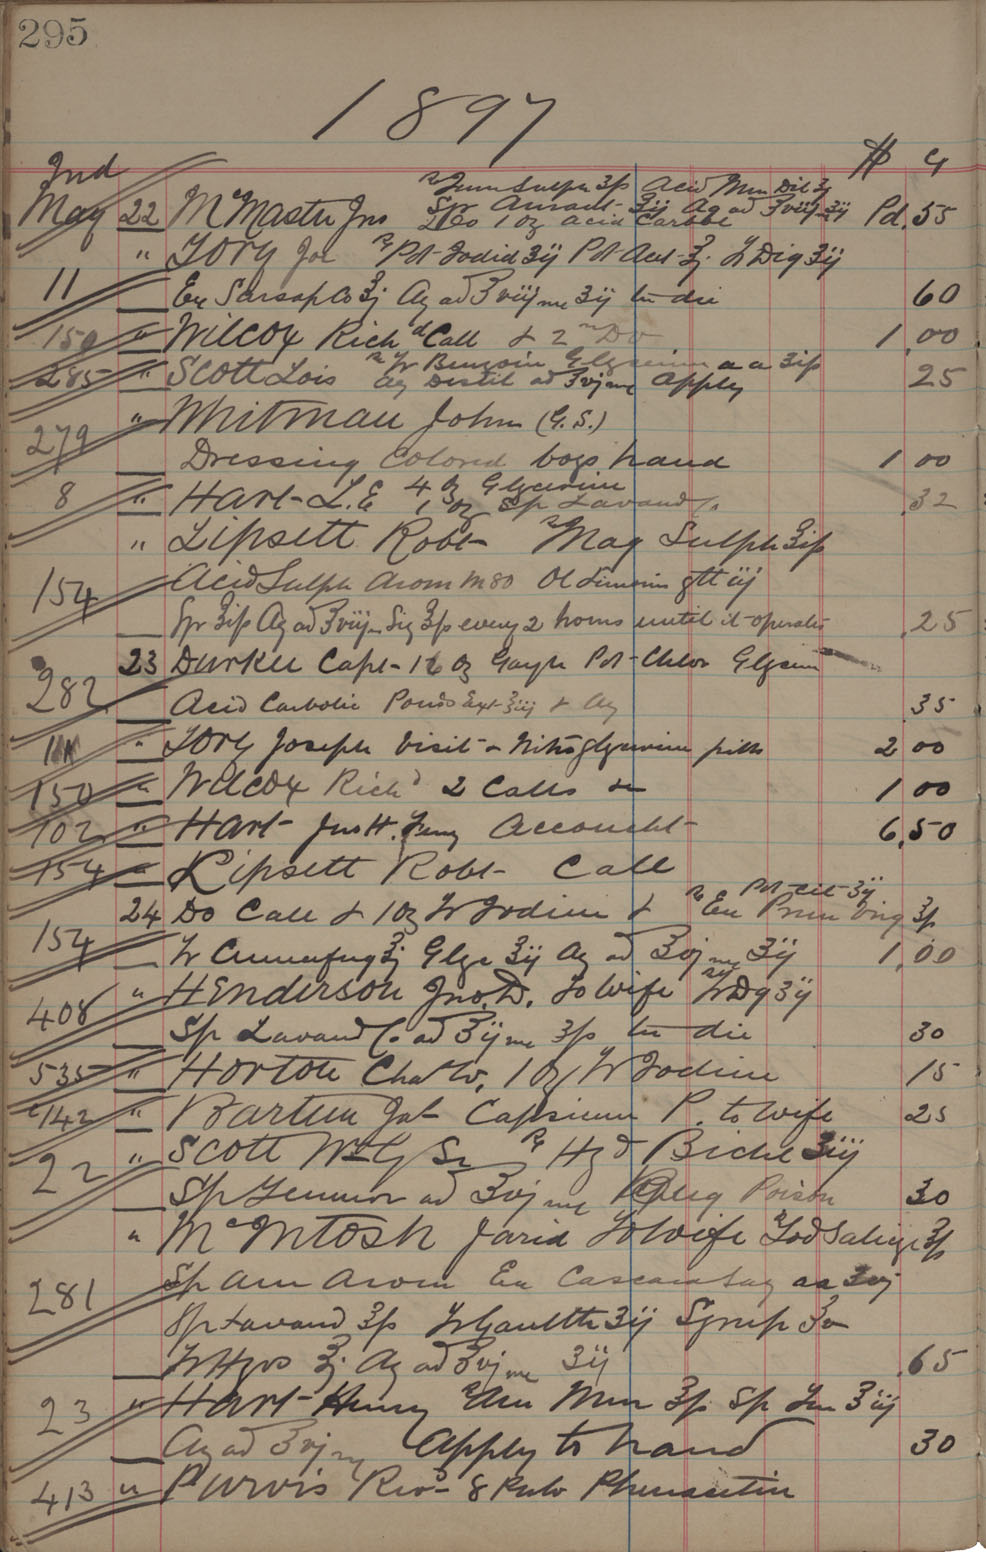 295
1897
Ind $ C
℞ Ferri Sulph ʒſs Acid Mur Dil ʒj
May 22 McMaster Jno Syr Aurant ʒij Aq ad ℥viij ʒij Pd. 55
Do 1 oz Acid Carbol
" Tory Jos ℞ Pot Iodid ʒij Pot Acet ℥j Tr Dig ʒij
11 Ex Sarsap Co ℥j Aq ad ℥viij me ʒij ter die 60
150 " Wilcox Richd Call & 2nd Do 1 00
℞ Tr Benzoin Glycerin a a ʒiſs
285 " Scott Lois Aq Distil ad ℥vj me Apply 25
" Whitman John (G.S.)
279 Dressing Colored boys hand 1 00
4 oz Glycerine
8 " Hart L.E 1 oz Sp Lavand Co 32
" Lipsett Robt ℞ Mag Sulph ℥iſs
154 Acid Sulph Arom m80 Ol Limonis gtt iij
Syr ℥iſs Aq ad ℥viij Sig ℥ſs every 2 hours until it operates 25
23 Durkee Capt 16 oz Gargle Pot Chlor Glycerin
282 Acid Carbolic Ponds Ext ʒiij & Aq 35
11 " Tory Joseph Visit & Nitroglycerine pills 2 00
150 " Wilcox Richd 2 Calls 1 00
102 " Hart Jno H. Account 6.50
154 " Lipsett Robt Call
Pot Cit ʒij
24 Do Call & 1 oz Tr Iodine & ℞ Ex Prun Virg ℥ſs
154 Tr Cimicifug ℥j Glyc ʒij Aq ad ℥vj me ʒij 1.00
408 " Henderson Jno. D. To Wife ℞ Tr Dig ʒij
Sp Lavand Co ad ℥ij me ʒſs ter die 30
535 " Horton Chas W. 1 oz Tr Iodine 15
142 " Bartun Jas Capsicum P. to Wife 25
22 " Scott Wm Sr ℞ Hyd Bichl
Sp ad ℥vj me Poison 30
" McIntosh Jarid To Wife ℞ Sod Salicyl ℥ſs
281 Sp Am Arom Ex Cascara Sag aa ʒvj
Sp Lavand ℥ſs Tr Gaulth ʒij Syrup ℥v
Tr Hyos ℥j Aq ad ℥vj me ʒij 65
23 " Hart Henry ℞ Am Mur ℥ſs Sp ʒiij
Aq ad ℥vj me Apply to hand 30
413 " Purvis Revd 8 Pulv Phenacetin